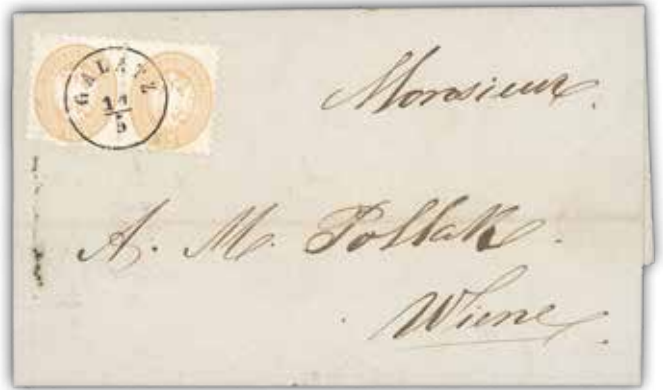 GALATZ
5
Monsieur.
A. M. Pollak.
Wiene.